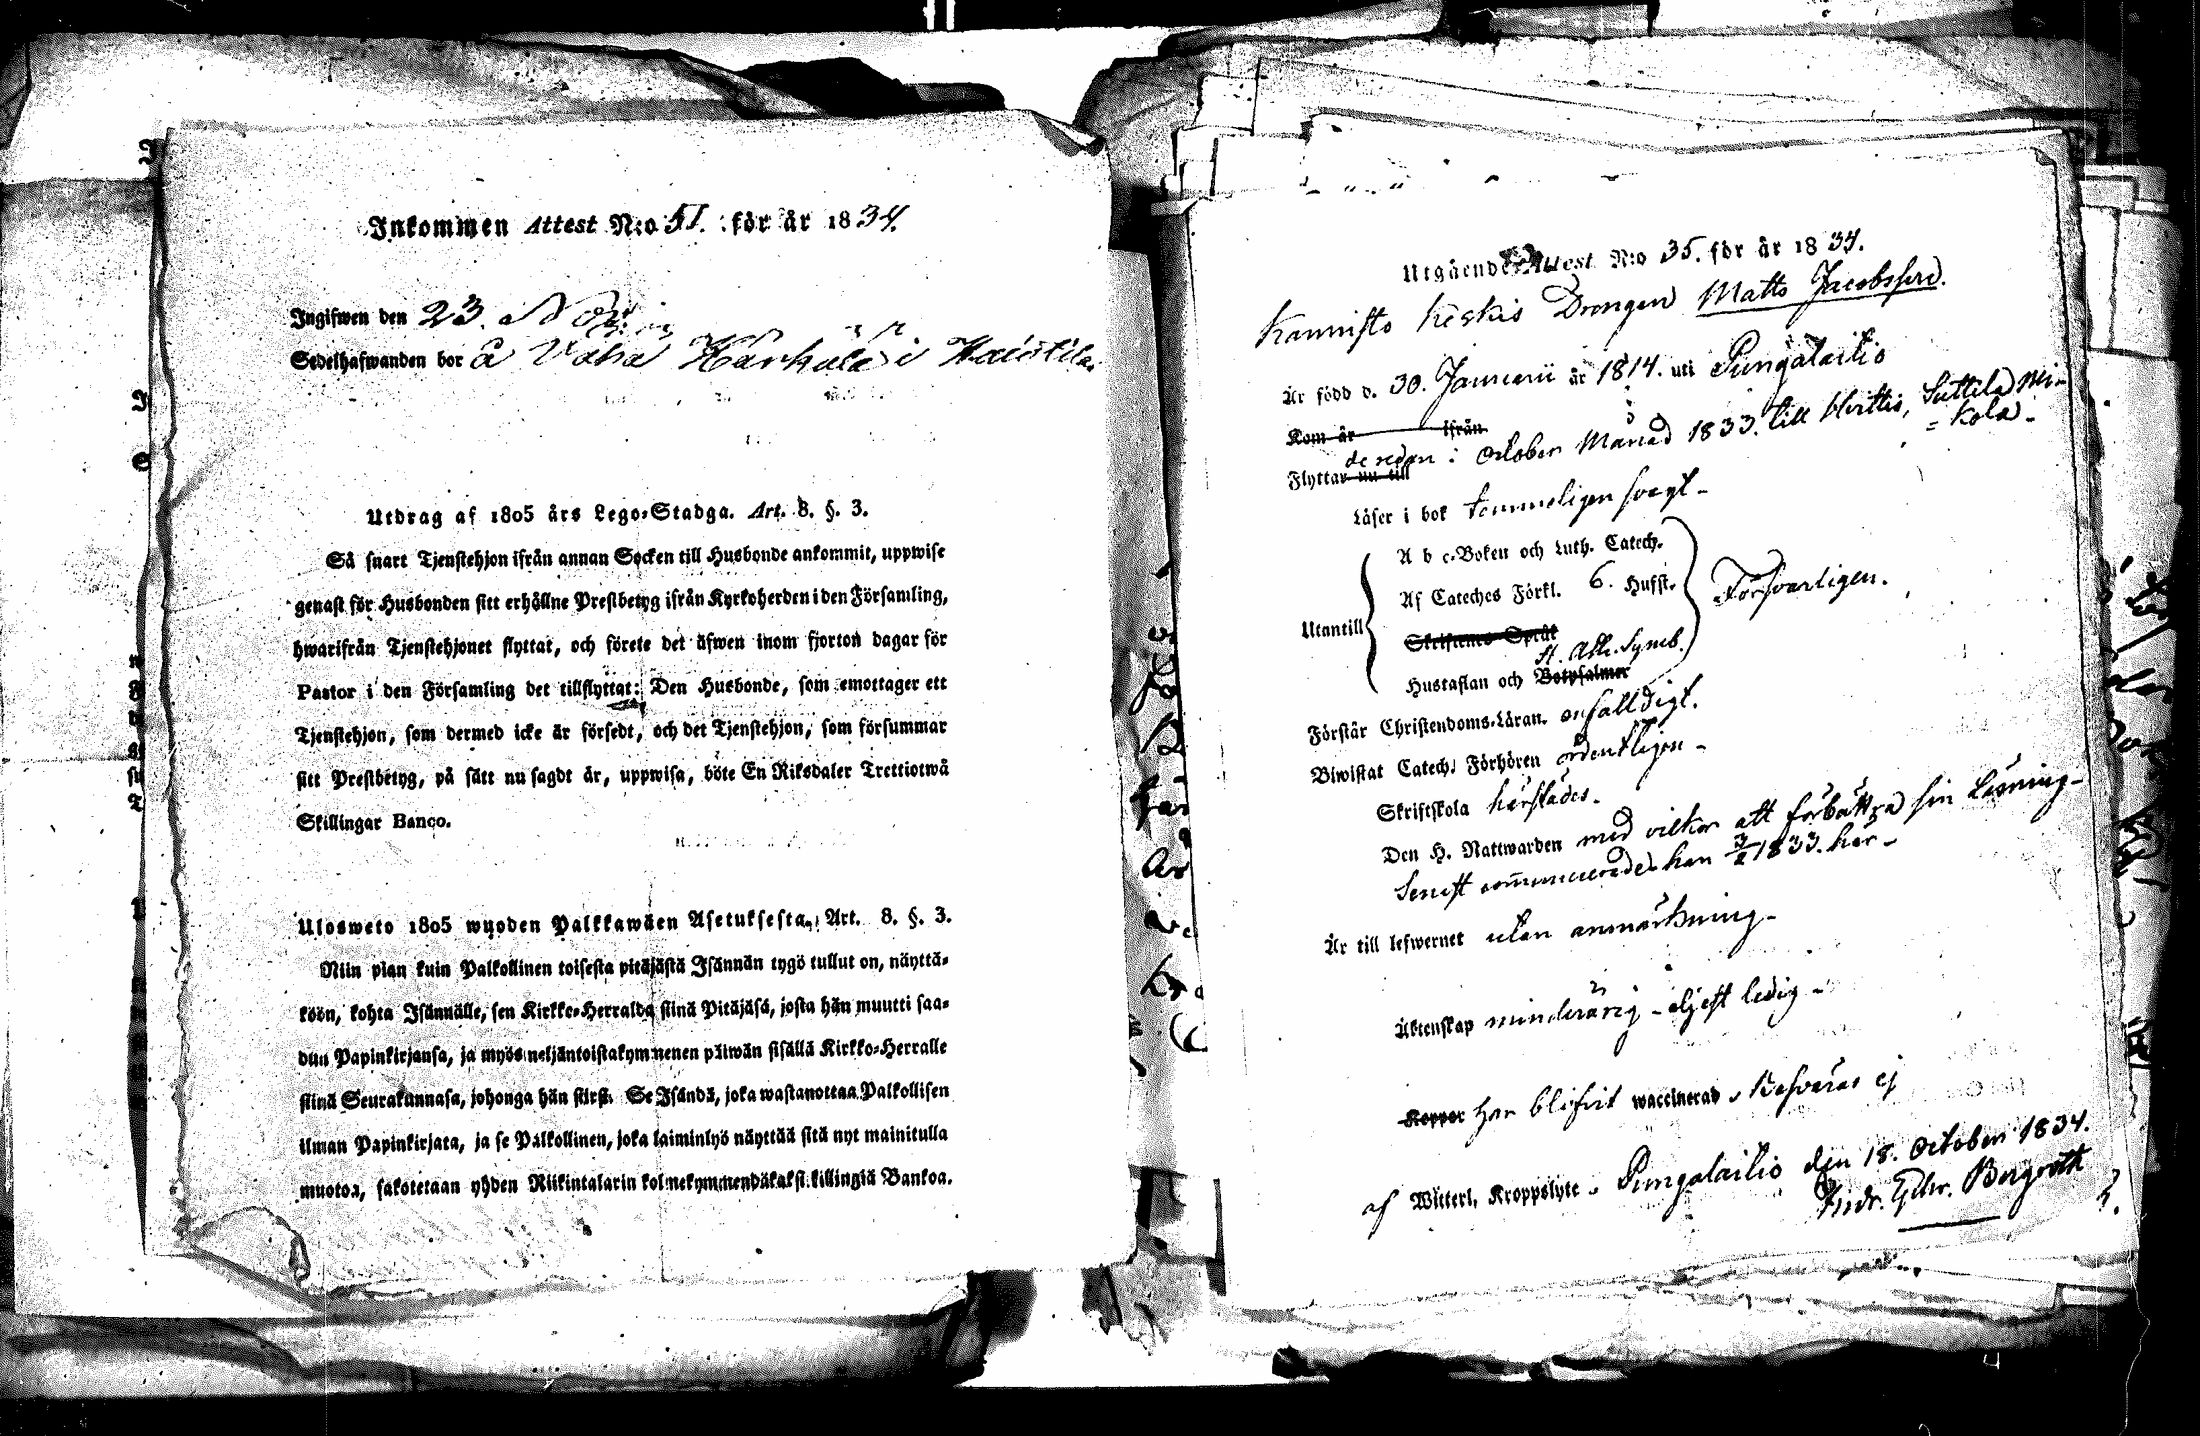 Inkommen Attest N:o 51. för år 1834.
Ingifwen den 23. Nov:
Sedelhafwanden bor å Vaha Härhälä i Haistila.
Utdrag af 1805 års Lego-Stadga. Art. 8. §. 3.
Så snart Tjenstehjon ifrån annan Socken till Husbonde ankommit, uppwise
genast för Husbonden sitt erhållne Prestbetyg ifrån Kyrkoherden i den Församling,
hwarifrån Tjenstehjonet flyttat, och förete det äfwen inom fjorton dagar för
Pastor i den Församling det tillflyttat: Den Husbonde, som emottager ett
Tjenstehjon, som dermed icke är försedt, och det Tjenstehjon, som försummar
sitt Prestbetyg, på sätt nu sagdt är, uppwisa, böte En Riksdaler Trettiotwå
Skillingar Banco.
Ulosweto 1805 wuoden Palkkawäen Asetuksesta, Art. 8. §. 3.
Niin pian kuin Palkollinen toisesta pitäjästä Isännän tygö tullut on, näyttä-
köön, kohta Isännälle, sen Kirkko-Herralda siinä Pitäjäsä, josta hän muutti saa-
dun Papinkirjansa, ja myös neljäntoistakymmenen päiwän sisällä Kirkko-Herralle
siinä Seurakunnasa, johonga hän siirsi. Se Isändä, joka wastanottaa Palkollisen
ilman Papinkirjata, ja se Palkollinen, joka laiminlyö näyttää sitä nyt mainitulla
muotoa, sakotetaan yhden Riikintalarin kolmekymmendäkaksi killingiä Bankoa.
Utgående Attest N:o 35. för år 1834.
Kannisto Keskis Drengen Matts Jacobsson.
Är född d. 30. Januarii år 1814. uti Pungalaitio
Kom år ifrån
Flyttade redan i October Månad 1833. till Hvittis, Suttila Mi-
=kola-
nu till
Läser i bok temmeligen svagt-
A b c-Boken och Luth. Catech.
Af Cateches Förkl. 6. Hufst.
Försvarligen.
Utantill
Skriftenes Språk
St. Ath. Symb.
Hustaflan och Botpsalmer
Förstår Christendoms-Läran. enfalldigt.
Biwistat Catech. Förhören ordentligen-
Skriftskola härstädes-
Den H. Nattwarden med vilkor att förbättra sin Läsning-
Senast communicerade han 3/2 1833. här-
Är till lefwernet utan anmärkning-
Äktenskap minderårig - eljest ledig-
Koppor har blifvit waccinerad, Besväras ej
af Witterl. Kroppslyte. Pungalaitio den 18. October 1834.
Andr. Gehr. Bergroth